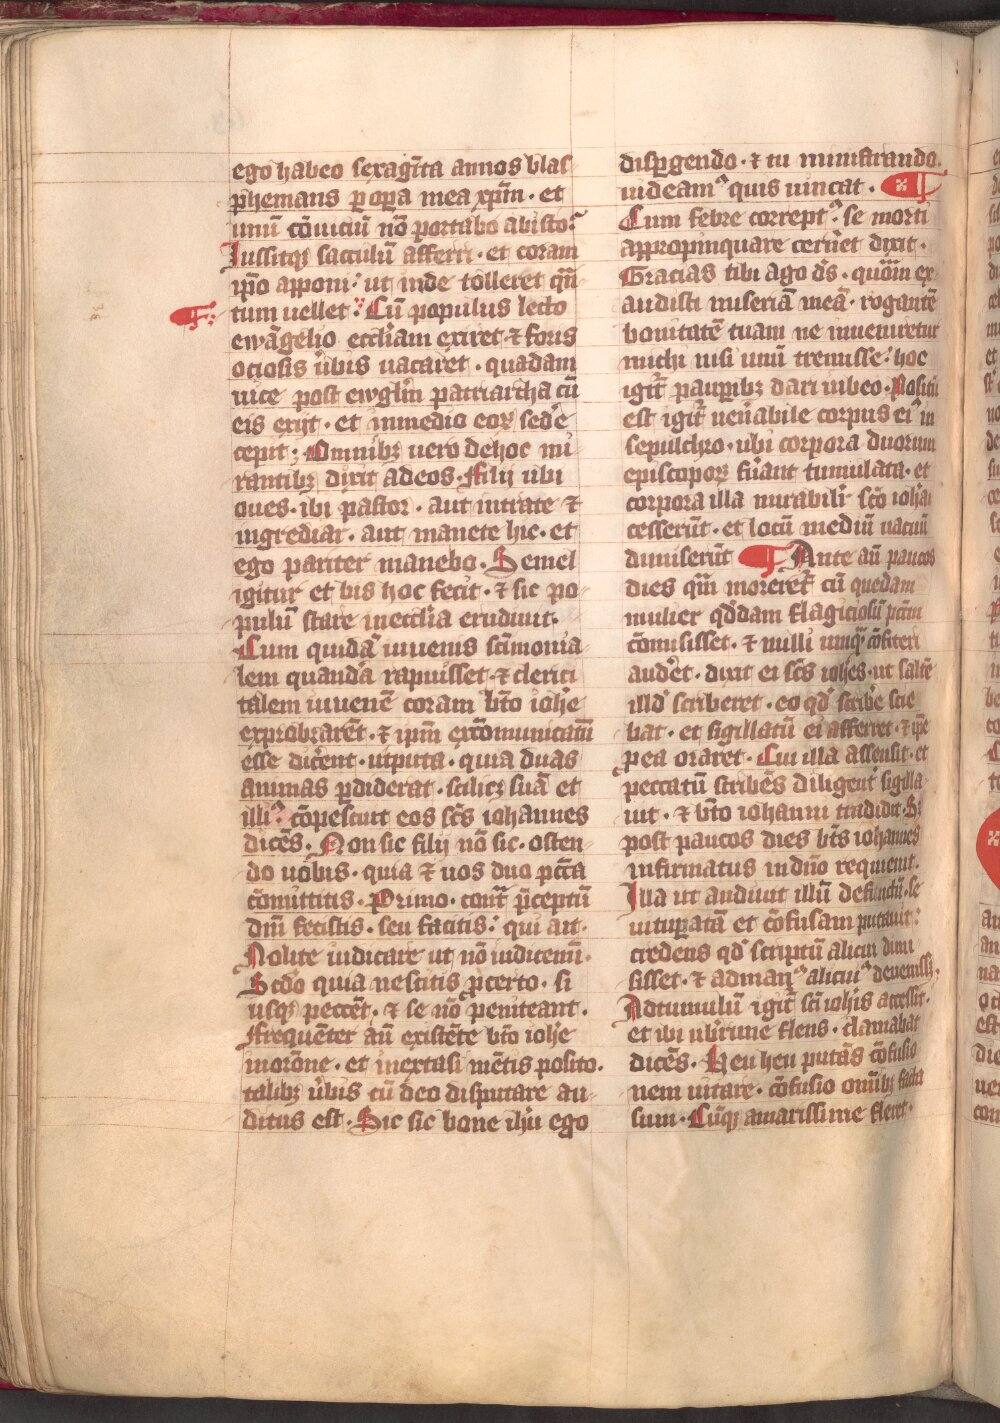 ego habeo sexagīta annos blas-
phemans ꝑ oꝑa mea xp̄m · et
unū cōuiciū nō portabo ab isto?
Iussitqꝫ sacculū afferri · et coram
ip̄o apponi · ut inde tolleret qn̄-
tum uellet · Cū populus lecto
ewāgelio eccl̄iam exiret · ⁊ foris
ociosis u̾bis uacaret · quadam
uice post ewgl̄iū patriarcha cū
eis exijt · et in medio eoꝝ sed̾e
cepit · Omnibꝫ uero de hoc mi
rantibꝫ dixit ad eos · Filij ubi
oues · ibi pastor · aut intrate ⁊
ingrediar · aut manete hic · et
ego pariter manebo · Semel
igitur et bis hoc fecit · ⁊ sic po-
pulū stare in eccl̄ia erudiuit·
Cum quidā iuuenis sc̄imonia-
lem quandā rapuisset · ⁊ clerici
talem iuuenē coram bt̄o ioh̄e
exprobrarēt · ⁊ ip̄m excōmunicatū
esse dic̾ent · utputa · quia duas
animas ꝑdiderat · scilicꝫ suā et
illiꝰ · cōpescuit eos sc̄s iohannes
dicēs · Non sic filij nō sic · osten-
do uobis · quia ⁊ uos duo pcc̄a
cōmittitis · Primo · contͣ p̄ceptū
dn̄i fecistis · seu facitis · qui ait·
Nolite iudicare ut nō iudicemī·
Scd̄o quia nescitis ꝓ certo · si
usqꝫ peccēt · ⁊ se nō peniteant ·
Frequēter aū existēte bt̄o ioh̄e
in orōne · et in extasi mētis posito·
talibꝫ u̾bis cū deo disputare au-
ditus est · Sic sic bone ih̄u ego
disꝑgendo · ⁊ tu ministrando·
uideamꝰ quis uincat ·
Cum febre correptꝰ · se morti
appropinquare cern̾et dixit·
Gracias tibi ago d̄s · quōm ex-
audisti miseriā meā · rogantē
bonitatē tuam ne inueniretur
michi nisi unū tremisse · hoc
igit̄ pauꝑibꝫ dari iubeo · Positū
est igit̄ uen̾abile corpus eiꝰ in
sepulchro · ubi corpora duorum
episcopoꝝ fu̾ant tumulata · et
corpora illa mirabilit̾ sc̄o ioh̄ai
cesserūt · et locū mediū uacuū
dimiserūt Ante aū paucos
dies qm̄ moreret̄ cū quedam
mulier qd̾dam flagiciosū pcc̄m
cōmisisset · ⁊ nulli umqͣ cōfiteri
aud̾et · dixit ei sc̄s ioh̄es · ut saltē
illd̾ scriberet · eo qd̾ scrib̾e scie
bat · et sigillatū ei afferret · ⁊ ip̄e
ꝑ ea oraret · Cui illa assensit · et
peccatū scribēs diligent̾ sigilla-
uit · ⁊ bt̄o iohanni tradidit · S;
post paucos dies bt̄s iohannes
infirmatus in dn̄o requieuit·
Illa ut audiuit illū defunctū · se
uituꝑatā et cōfusam putauit:
credens qd̾ scriptū alicui dimi
sisset · ⁊ ad manꝰ alicuiꝰ deuenissꝫ·
Ad tumulū igit̄ sc̄i ioh̄is accessit·
et ibi ub̾rime flens · clamabat
dicēs · Heu heu putās cōfusio
nem uitare · cōfusio om̄ibꝫ facta
sum · Cūqꝫ amarissime fleret·